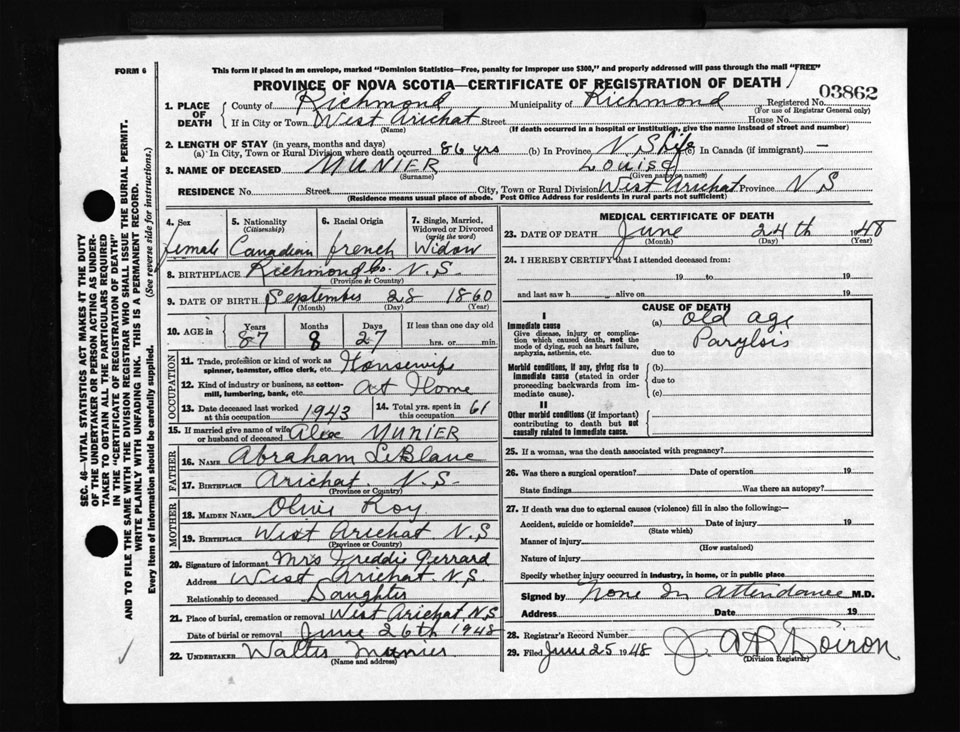 FORM 6
This form if placed in an envelope, marked "Dominion Statistics—Free, penalty for improper use $300," and properly addressed will pass through the mail "FREE"
PROVINCE OF NOVA SCOTIA—CERTIFICATE OF REGISTRATION OF DEATH
03862
1. PLACE OF DEATH County of Richmond Municipality of Richmond Registered No.
(For use of Registrar General only)
If in City or Town West Arichat Street House No.
(Name) (If death occurred in a hospital or institution, give the name instead of street and number)
2. LENGTH OF STAY (in years, months and days)
(a) In City, Town or Rural Division where death occurred 86 yrs (b) In Province N S Life (c) In Canada (if immigrant) —
3. NAME OF DECEASED MUNIER Louise
(Surname) (Given name or names)
RESIDENCE No. Street City, Town or Rural Division West Arichat Province N S
(Residence means usual place of abode. Post Office Address for residents in rural parts not sufficient)
4. Sex 5. Nationality (Citizenship) 6. Racial Origin 7. Single, Married, Widowed or Divorced (write the word)
female Canadian french Widow
8. BIRTHPLACE Richmond Co. N.S.
(Province or Country)
9. DATE OF BIRTH September 28 1860
(Month) (Day) (Year)
10. AGE in Years Months Days If less than one day old
87 8 27 hrs. or min.
OCCUPATION
11. Trade, profession or kind of work as spinner, teamster, office clerk, etc. Housewife
12. Kind of industry or business, as cotton-mill, lumbering, bank, etc. At Home
13. Date deceased last worked at this occupation 1943 14. Total yrs. spent in this occupation 61
15. If married give name of wife or husband of deceased Alex MUNIER
FATHER
16. NAME Abraham LeBlanc
17. BIRTHPLACE Arichat N.S.
(Province or Country)
MOTHER
18. MAIDEN NAME Olive Roy
19. BIRTHPLACE West Arichat N.S
(Province or Country)
20. Signature of informant Mrs Freddie Perrard
Address West Arichat N.S.
Relationship to deceased Daughter
21. Place of burial, cremation or removal West Arichat, N.S
Date of burial or removal June 26th 1948
22. UNDERTAKER Walter Munier
(Name and address)
MEDICAL CERTIFICATE OF DEATH
23. DATE OF DEATH June 24th 1948
(Month) (Day) (Year)
24. I HEREBY CERTIFY that I attended deceased from:
19 to 19
and last saw h alive on 19
CAUSE OF DEATH
I
Immediate cause (a) old age
Give disease, injury or complication which caused death, not the mode of dying, such as heart failure, asphyxia, asthenia, etc. Parylsis
due to
Morbid conditions, if any, giving rise to immediate cause (stated in order proceeding backwards from immediate cause). (b)
due to
(c)
II
Other morbid conditions (if important) contributing to death but not causally related to immediate cause.
25. If a woman, was the death associated with pregnancy?
26. Was there a surgical operation? Date of operation 19
State findings Was there an autopsy?
27. If death was due to external causes (violence) fill in also the following:—
Accident, suicide or homicide? Date of injury 19
(State which)
Manner of injury
(How sustained)
Nature of injury
Specify whether injury occurred in industry, in home, or in public place
Signed by None In Attendance M.D.
Address Date 19
28. Registrar's Record Number
29. Filed June 25 1948 J. A R Doiron
(Division Registrar)
SEC. 46—VITAL STATISTICS ACT MAKES IT THE DUTY
OF THE UNDERTAKER OR PERSON ACTING AS UNDER-
TAKER TO OBTAIN ALL THE PARTICULARS REQUIRED
IN THE "CERTIFICATE OF REGISTRATION OF DEATH"
AND TO FILE THE SAME WITH THE DIVISION REGISTRAR WHO SHALL ISSUE THE BURIAL PERMIT.
WRITE PLAINLY WITH UNFADING INK. THIS IS A PERMANENT RECORD.
Every item of information should be carefully supplied. (See reverse side for instructions.)